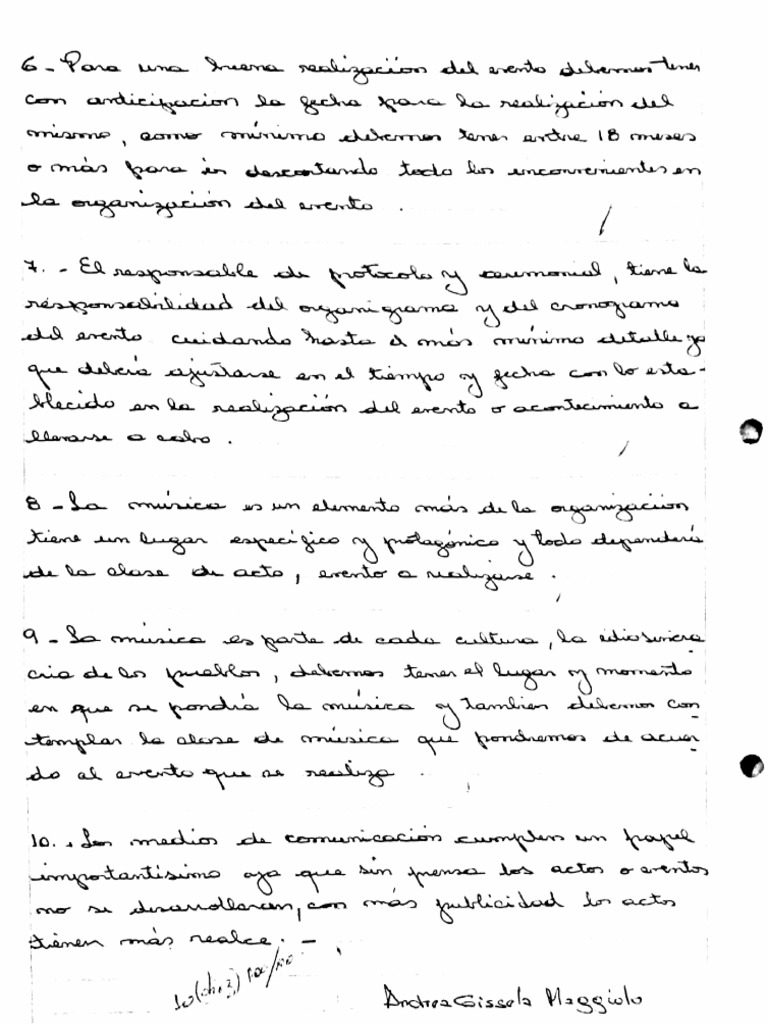 6 - Para una buena realización del evento debemos tener
con anticipacion la fecha para la realización del
mismo, como mínimo debemos tener entre 18 meses
o más para ir descartando todo los inconvenientes en
la organización del evento.
7. - El responsable de protocolo y ceremonial, tiene la
responsabilidad del organigrama y del cronograma
del evento cuidando hasta el más mínimo detalle ya
que debría ajustarse en el tiempo y fecha con lo esta-
blecido en la realización del evento o acontecimiento a
llevarse a cabo.
8 - La música es un elemento más de la organización
tiene un lugar específico y protagónico y todo dependería
de la clase de acto, evento a realizarse.
9 - La música es parte de cada cultura, la idiosincra
cria de los pueblos, debemos tener el lugar y momento
en que se pondría la música y tambien debemos con
templar la clase de música que pondremos de acuer
do al evento que se realiza.
10. - Los medios de comunicación cumplen un papel
importantísimo ya que sin prensa los actos o eventos
no se desarrollarían, con más publicidad los actos
tienen más realce. -
10 (diez) 100/100
Andrea Gissela Maggiolo